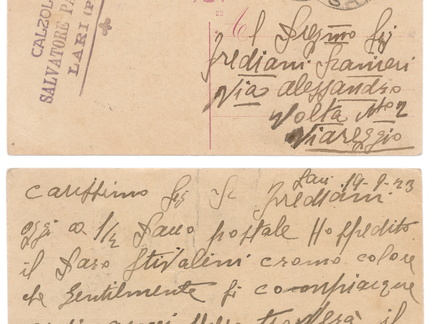 CALZOL
SALVATORE PA
LARI (P
Al Pregmo Sig
Frediani Ranieri
Via Alessandro
Volta No 2
Viareggio
Lari 19-9-23
Carissimo Sig Frediani
oggi a 1/2 Pacco postale Ho spedito
il Paro Stivalini cromo colore
che Gentilmente si compiacque
il